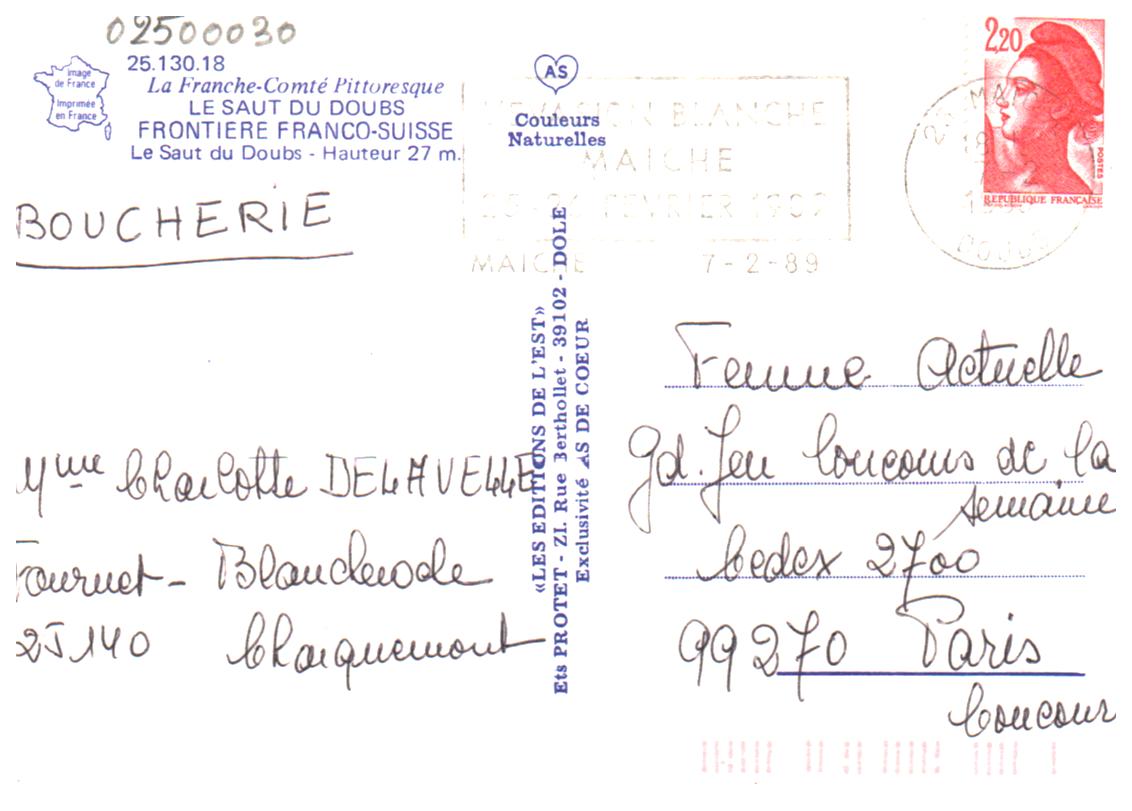 02500030
image
de France
Imprimée
en France
25.130.18
La Franche-Comté Pittoresque
LE SAUT DU DOUBS
FRONTIERE FRANCO-SUISSE
Le Saut du Doubs - Hauteur 27 m.
AS
Couleurs
Naturelles
L'EVASION BLANCHE
MAICHE
FEVRIER 1989
MAICHE 7-2-89
2,20
POSTES
REPUBLIQUE FRANÇAISE
DOUBS
BOUCHERIE
Mme Charlotte DELAVELLE
Fournet-Blancheroche
25140 Charquemont
«LES EDITIONS DE L'EST»
Ets PROTET - ZI. Rue Berthollet - 39102 - DOLE
Exclusivité AS DE COEUR
Femme Actuelle
Gd. Jeu Concours de la
semaine
Cedex 2700
99270 Paris
Concour